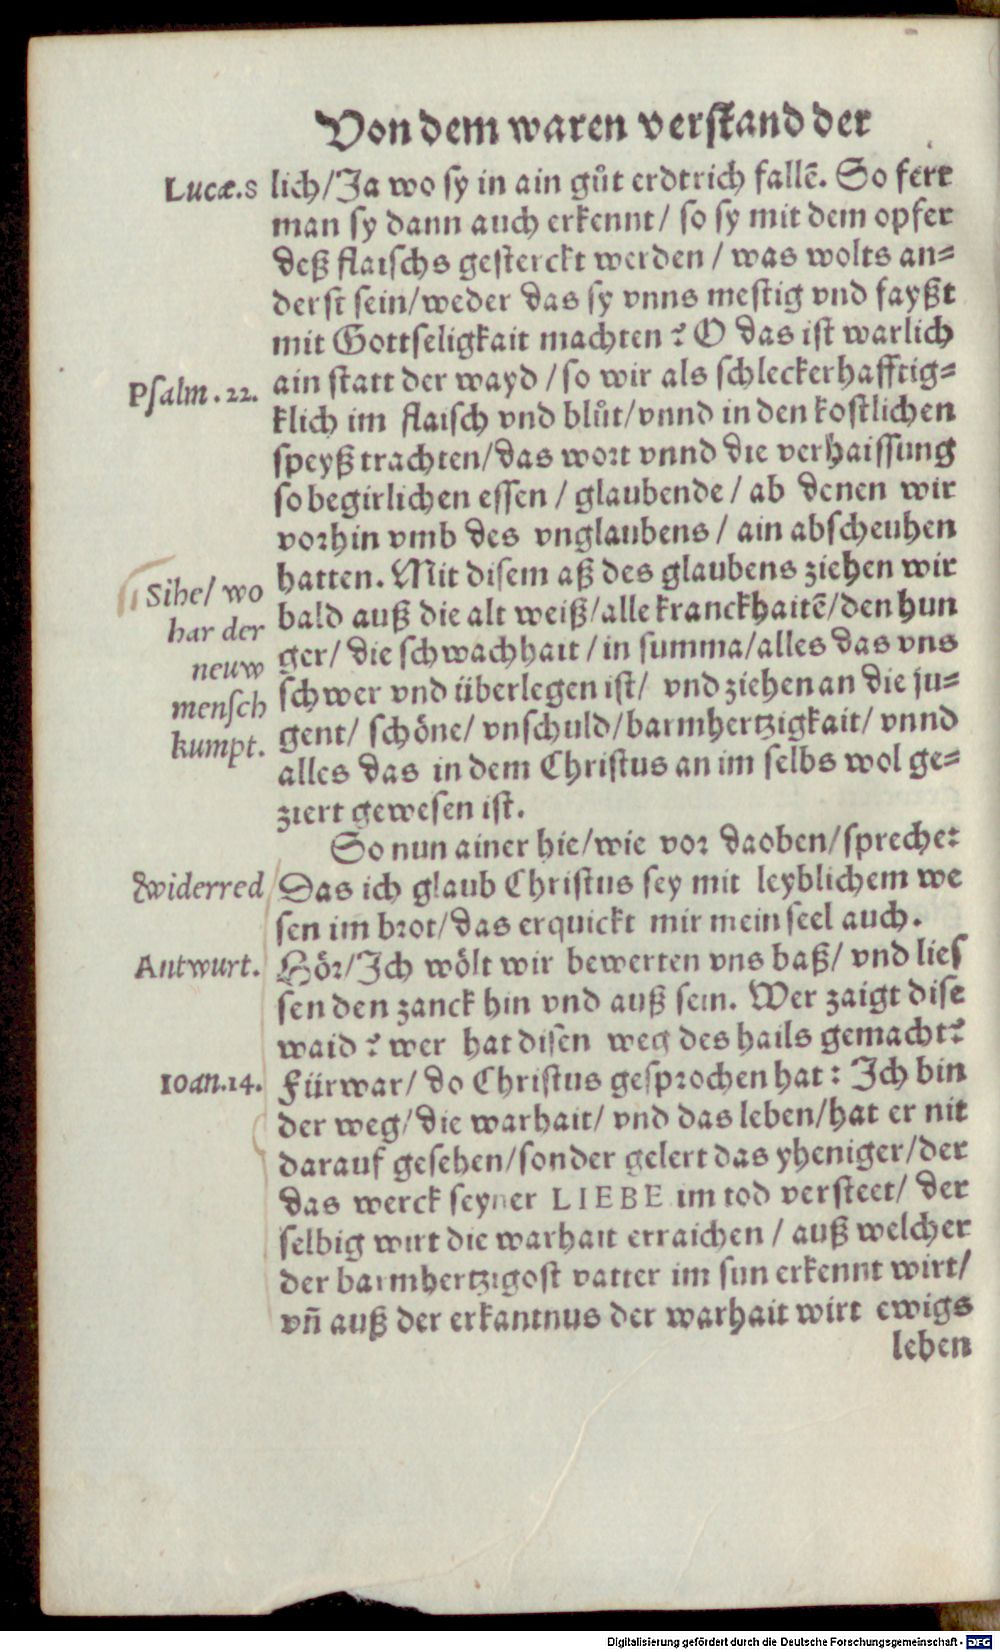 Von dem waren verstand der
Lucæ.8
lich/Ja wo sy in ain gůt erdtrich fallẽ. So ferr
man sy dann auch erkennt/ so sy mit dem opfer
deß flaischs gesterckt werden / was wolts an=
derst sein/weder das sy vnns mestig vnd fayßt
mit Gottseligkait machten? O das ist warlich
Psalm.22.
ain statt der wayd /so wir als schleckerhafftig=
klich im flaisch vnd blůt/vnnd in den kostlichen
speyß trachten/das wort vnnd die verhaissung
so begirlichen essen / glaubende / ab denen wir
vorhin vmb des vnglaubens / ain abscheuhen
hatten. Mit disem aß des glaubens ziehen wir
Sihe/ wo
har der
neuw
mensch
kumpt.
bald auß die alt weiß/alle kranckhaitẽ/den hun
ger/ die schwachhait /in summa/alles das vns
schwer vnd überlegen ist/ vnd ziehen an die ju=
gent/ schöne/ vnschuld/barmhertzigkait/ vnnd
alles das in dem Christus an im selbs wol ge=
ziert gewesen ist.
So nun ainer hie/wie vor daoben/spreche:
dwiderred
Das ich glaub Christus sey mit leyblichem we
sen im brot/das erquickt mir mein seel auch.
Antwurt.
Hör/Ich wölt wir bewerten vns baß/ vnd lies
sen den zanck hin vnd auß sein. Wer zaigt dise
waid? wer hat disen weg des hails gemacht?
Ioan.14.
Fürwar/ do Christus gesprochen hat: Ich bin
der weg/die warhait/ vnd das leben/hat er nit
darauf gesehen/sonder gelert das yheniger/der
das werck seyner LIEBE im tod versteet/ der
selbig wirt die warhait erraichen / auß welcher
der barmhertzigost vatter im sun erkennt wirt/
vñ auß der erkantnus der warhait wirt ewigs
leben
Digitalisierung gefördert durch die Deutsche Forschungsgemeinschaft - DFG